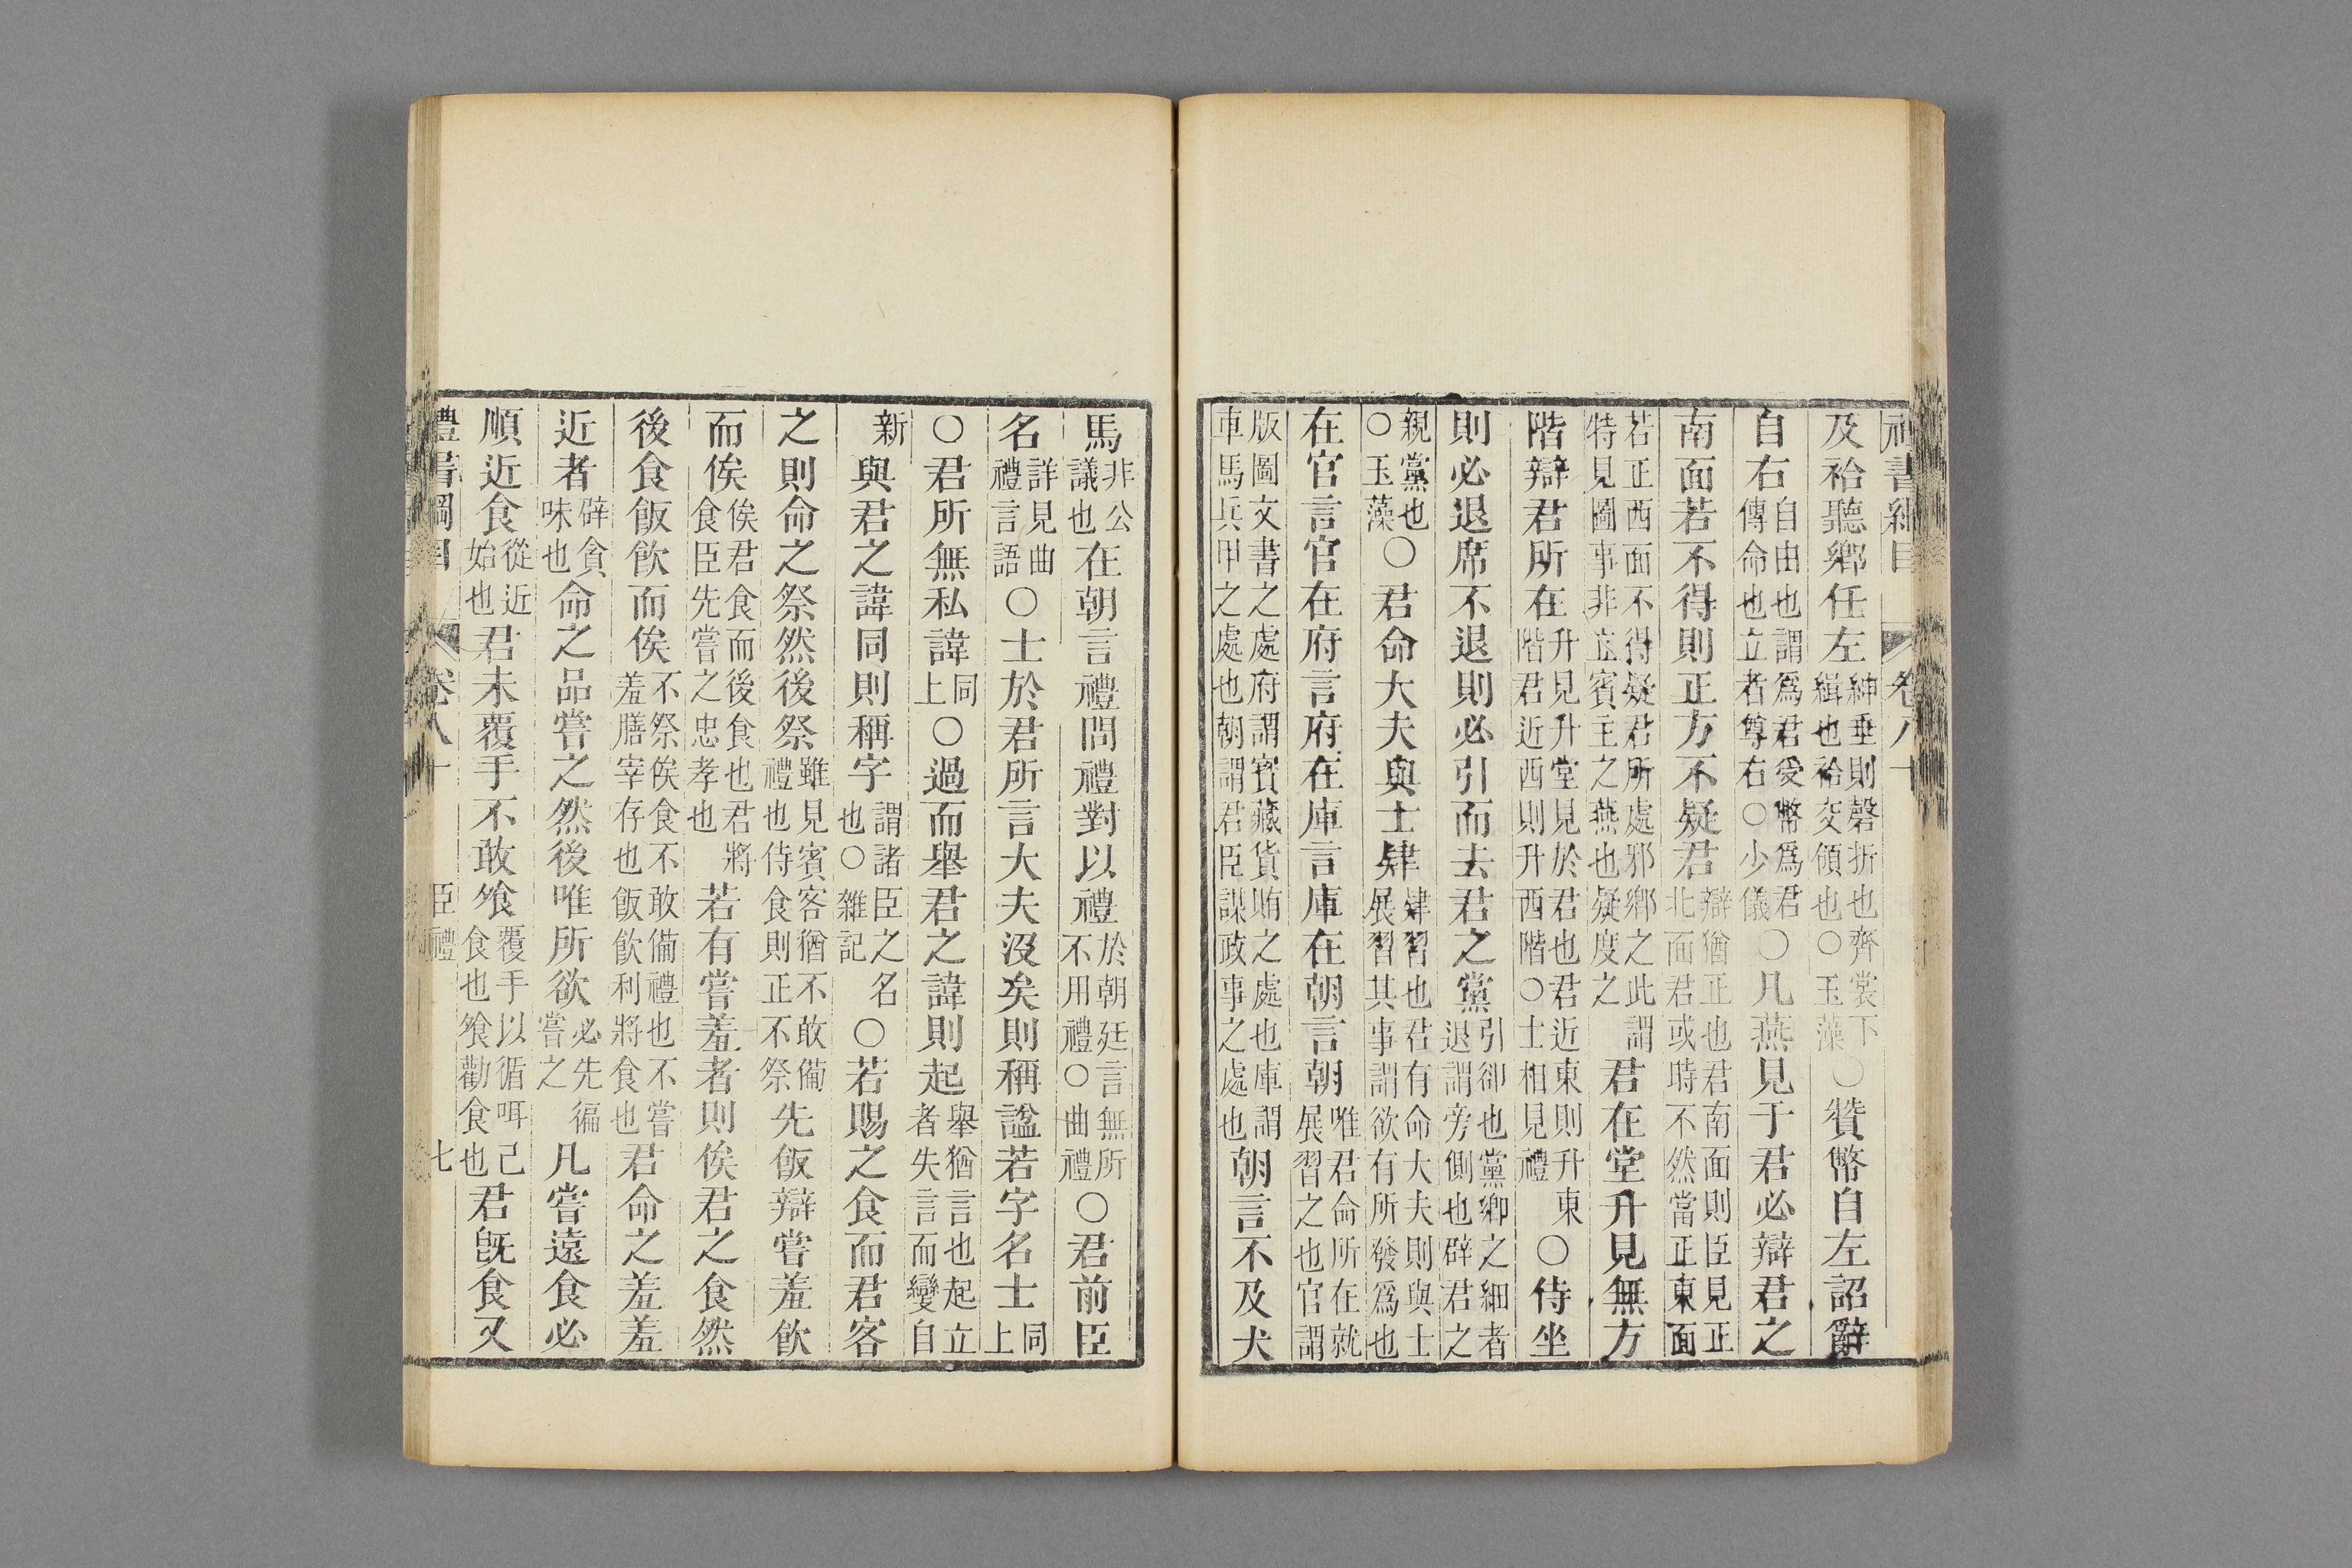 禮書綱目 卷八十
及袷聽鄉任左紳垂則磬折也齊裳下緝也袷交領也○玉藻○贊幣自左詔辭
自右自由也謂爲君受幣爲君傳命也立者尊右○少儀○凡燕見于君必辯君之
南面若不得則正方不疑君辯猶正也君南面則臣見正北面君或時不然當正東面
若正西面不得疑君所處邪鄉之此謂特見圖事非立賓主之燕也疑度之君在堂升見無方
階辯君所在升見升堂見於君也君近東則升東階君近西則升西階○士相見禮○侍坐
則必退席不退則必引而去君之黨引卻也黨鄉之細者退謂旁側也辟君之
親黨也○玉藻○君命大夫與士肄肄習也君有命大夫則與士展習其事謂欲有所發爲也
在官言官在府言府在庫言庫在朝言朝唯君命所在就展習之也官謂
版圖文書之處府謂寳藏貨賄之處也庫謂車馬兵甲之處也朝謂君臣謀政事之處也朝言不及犬
馬非公議也在朝言禮問禮對以禮於朝廷言無所不用禮○曲禮○君前臣
名詳見曲禮言語○士於君所言大夫沒矣則稱諡若字名士同上
○君所無私諱同上○過而舉君之諱則起舉猶言也起立者失言而變自
新與君之諱同則稱字謂諸臣之名也○雜記○若賜之食而君客
之則命之祭然後祭雖見賓客猶不敢備禮也侍食則正不祭先飯辯嘗羞飲
而俟俟君食而後食也君將食臣先嘗之忠孝也若有嘗羞者則俟君之食然
後食飯飲而俟不祭俟食不敢備禮也不嘗羞膳宰存也飯飲利將食也君命之羞羞
近者辟貪味也命之品嘗之然後唯所欲必先徧嘗之凡嘗遠食必
順近食從近始也君未覆手不敢飱覆手以循咡己食也飱勸食也君旣食又
禮書綱目 卷八十 臣禮 七